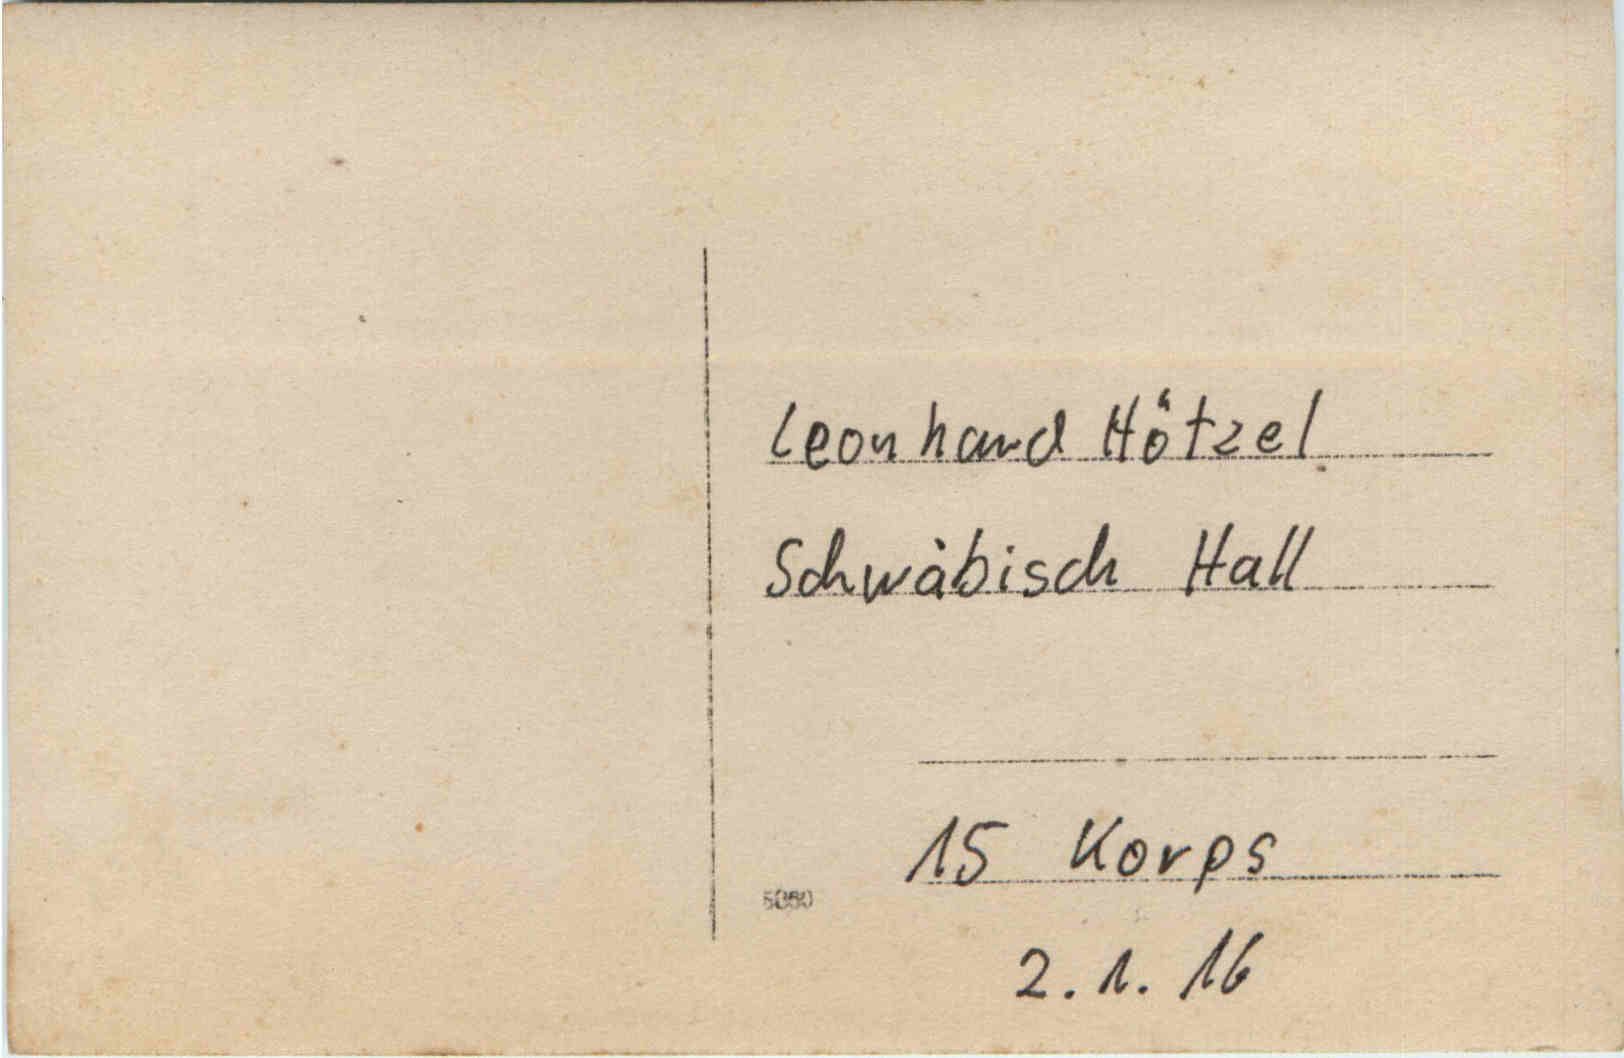 Leonhard Hötzel
Schwäbisch Hall
15 Korps
2.1.16